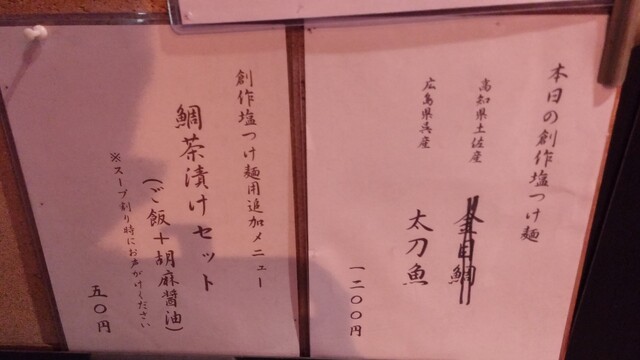 本日の創作塩つけ麺
高知県土佐産
金目鯛
広島県呉産
太刀魚
一二〇〇円
創作塩つけ麺用追加メニュー
鯛茶漬けセット
（ご飯＋胡麻醤油）
※スープ割り時にお声がけください
五〇円